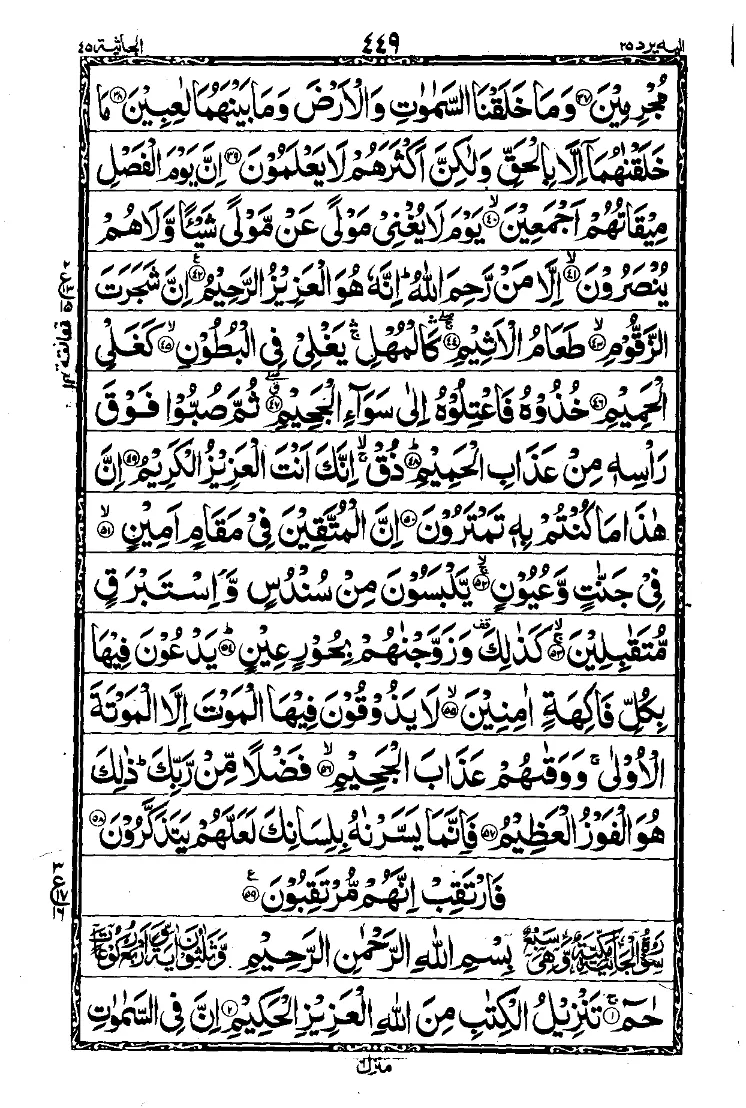 اليه يرد ٢٥
٤٤٩
الجاثية ٤٥
مُجْرِمِيْنَ ﴿٣٧﴾ وَمَا خَلَقْنَا السَّمٰوٰتِ وَالْاَرْضَ وَمَا بَيْنَهُمَا لٰعِبِيْنَ ﴿٣٨﴾ مَا
خَلَقْنٰهُمَآ اِلَّا بِالْحَقِّ وَلٰكِنَّ اَكْثَرَهُمْ لَا يَعْلَمُوْنَ ﴿٣٩﴾ اِنَّ يَوْمَ الْفَصْلِ
مِيْقَاتُهُمْ اَجْمَعِيْنَ ﴿٤٠﴾ۙ يَوْمَ لَا يُغْنِيْ مَوْلًى عَنْ مَّوْلًى شَيْئًا وَّلَا هُمْ
يُنْصَرُوْنَ ﴿٤١﴾ۙ اِلَّا مَنْ رَّحِمَ اللّٰهُ ؕ اِنَّهٗ هُوَ الْعَزِيْزُ الرَّحِيْمُ ﴿٤٢﴾ع اِنَّ شَجَرَتَ
الزَّقُّوْمِ ﴿٤٣﴾ۙ طَعَامُ الْاَثِيْمِ ﴿٤٤﴾ كَالْمُهْلِ ۛۚ يَغْلِيْ فِي الْبُطُوْنِ ﴿٤٥﴾ۙ كَغَلْيِ
الْحَمِيْمِ ﴿٤٦﴾ خُذُوْهُ فَاعْتِلُوْهُ اِلٰى سَوَآءِ الْجَحِيْمِ ﴿٤٧﴾ ثُمَّ صُبُّوْا فَوْقَ
رَاْسِهٖ مِنْ عَذَابِ الْحَمِيْمِ ﴿٤٨﴾ؕ ذُقْ ۚۙ اِنَّكَ اَنْتَ الْعَزِيْزُ الْكَرِيْمُ ﴿٤٩﴾ اِنَّ
هٰذَا مَا كُنْتُمْ بِهٖ تَمْتَرُوْنَ ﴿٥٠﴾ اِنَّ الْمُتَّقِيْنَ فِيْ مَقَامٍ اَمِيْنٍ ﴿٥١﴾ۙ
فِيْ جَنّٰتٍ وَّعُيُوْنٍ ﴿٥٢﴾ۚۙ يَّلْبَسُوْنَ مِنْ سُنْدُسٍ وَّاِسْتَبْرَقٍ
مُّتَقٰبِلِيْنَ ﴿٥٣﴾ۚۙ كَذٰلِكَ قف وَزَوَّجْنٰهُمْ بِحُوْرٍ عِيْنٍ ﴿٥٤﴾ؕ يَدْعُوْنَ فِيْهَا
بِكُلِّ فَاكِهَةٍ اٰمِنِيْنَ ﴿٥٥﴾ۙ لَا يَذُوْقُوْنَ فِيْهَا الْمَوْتَ اِلَّا الْمَوْتَةَ
الْاُوْلٰى ۚ وَوَقٰىهُمْ عَذَابَ الْجَحِيْمِ ﴿٥٦﴾ۙ فَضْلًا مِّنْ رَّبِّكَ ؕ ذٰلِكَ
هُوَ الْفَوْزُ الْعَظِيْمُ ﴿٥٧﴾ فَاِنَّمَا يَسَّرْنٰهُ بِلِسَانِكَ لَعَلَّهُمْ يَتَذَكَّرُوْنَ ﴿٥٨﴾
فَارْتَقِبْ اِنَّهُمْ مُّرْتَقِبُوْنَ ﴿٥٩﴾ع
سُوْرَةُ الْجَاثِيَةِ مَكِّيَّةٌ وَّهِيَ سَبْعٌ بِسْمِ اللّٰهِ الرَّحْمٰنِ الرَّحِيْمِ وَّثَلٰثُوْنَ اٰيَةً وَّاَرْبَعُ رُكُوْعَاتٍ
حٰمٓ ﴿١﴾ۚ تَنْزِيْلُ الْكِتٰبِ مِنَ اللّٰهِ الْعَزِيْزِ الْحَكِيْمِ ﴿٢﴾ اِنَّ فِي السَّمٰوٰتِ
منزل